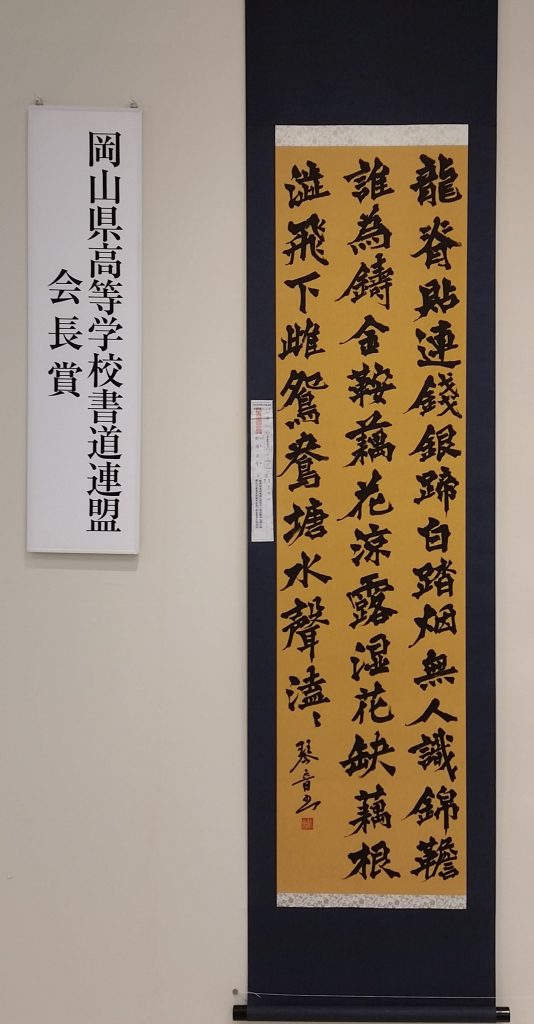 龍脊貼連錢銀蹄白踏烟無人識錦韂
誰為鑄金鞍藕花涼露湿花缺藕根
澁飛下雌鴛鴦塘水聲溘〻
琴音书
岡山県高等学校書道連盟
会長賞